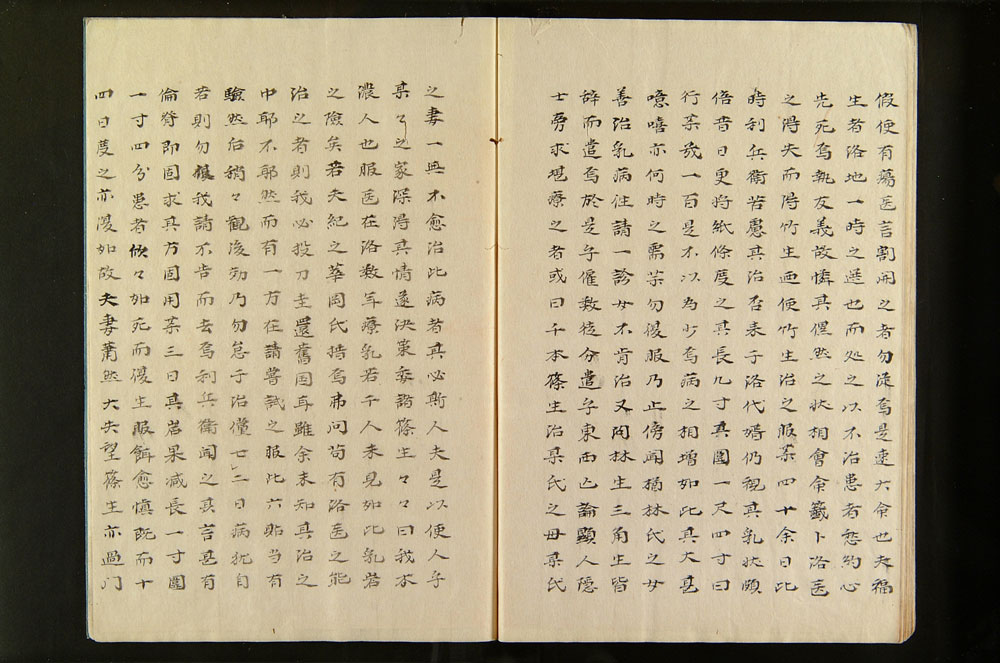 假便有瘍医言割開之者勿從焉是速大命也夫福
生者洛地一時之逞也而処之以不治患者愁約心
先死焉執友義故憐其俚然之状相會命籤卜洛医
之得失而得竹生迺便竹生治之服茱四十余日比
時利兵衛苦慮其治否来于洛代婿仍視其乳状頗
倍昔日更将紙條度之其長几寸其圍一尺四寸曰
行茱幾一百是不以為少焉病之相增如此其大甚
噫嘻亦何時之需茱勿復服乃止傍聞楠林氏之女
善治乳病往請一診女不肯治又問林生三角生皆
辞而遣焉於是乎僱数徒分遣乎東西凸論顯人隠
士旁求堪療之者或曰千本篠生治某氏之母某氏
之妻一無不愈治此病者其必斯人夫是以便人乎
某々之家深得其情遂決策委諸篠生々々曰我本
濃人也服医在洛数年療乳若干人未見如比乳岩
之險矣若夫紀之華岡氏措焉弗問苟有洛医之能
治之者則我必投刀圭還舊国耳雖余未知其治之
中耶不耶然而有一方在請嘗試之服此六貼当有
驗然后稍々觀後効乃勿怠于治僅七二日病犹自
若則勿復我請不告而去焉利兵衛聞之其言甚有
倫脊即固求其方固用茱三日其岩果减長一寸圍
一寸四分患者倏々如死而復生服餌愈慎既而十
四日度之亦復如故夫妻蕭然大失望篠生亦過门